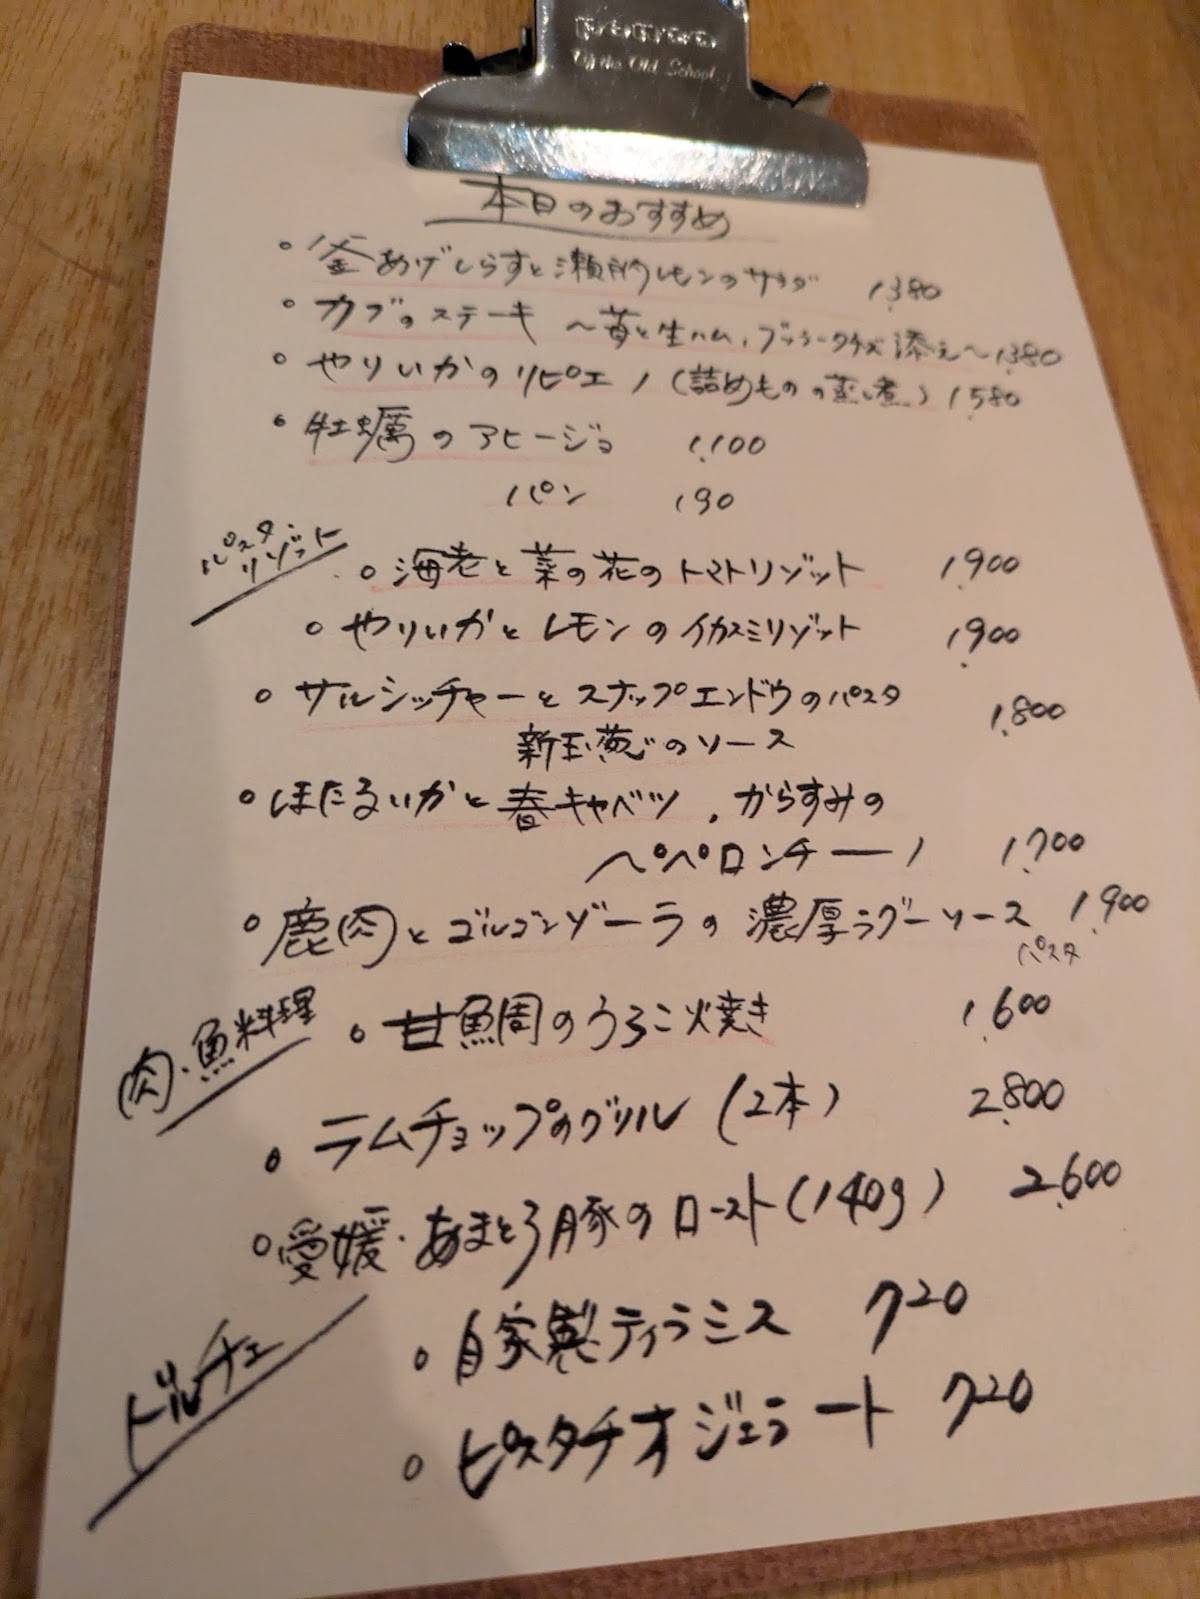 of the Old School
本日のおすすめ
○ 釜あげしらすと瀬戸内レモンのサラダ 1,380
○ カブのステーキ ～苺と生ハム、ブッラータチーズ添え～ 1,380
○ やりいかのリピエノ(詰めものの蒸し煮) 1,580
○ 牡蠣のアヒージョ 1,100
パン 190
パスタ・リゾット
○ 海老と菜の花のトマトリゾット 1,900
○ やりいかとレモンのイカスミリゾット 1,900
○ サルシッチャーとスナップエンドウのパスタ 1,800
新玉葱のソース
○ ほたるいかと春キャベツ、からすみの
ペペロンチーノ 1,700
○ 鹿肉とゴルゴンゾーラの濃厚ラグーソース 1,900
パスタ
肉・魚料理
○ 甘鯛のうろこ焼き 1,600
○ ラムチョップのグリル(2本) 2,800
○ 愛媛・あまとろ豚のロースト(140g) 2,600
ドルチェ
○ 自家製ティラミス 720
○ ピスタチオジェラート 720